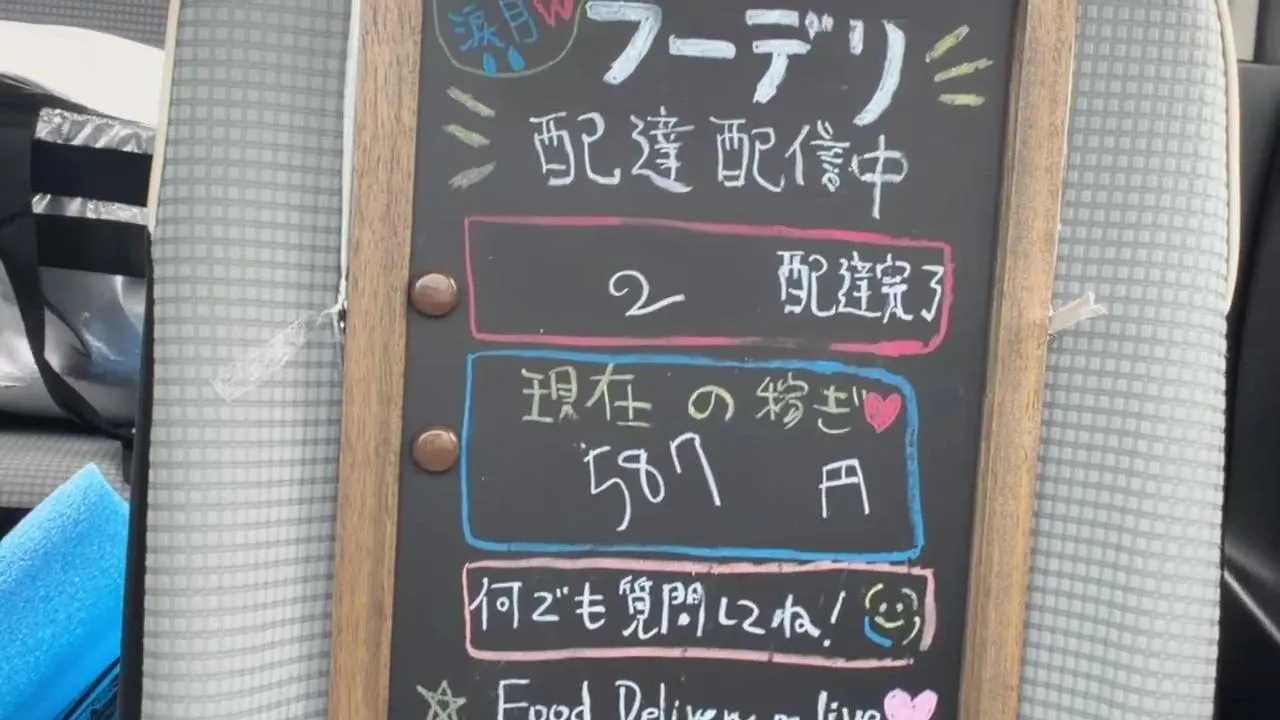 涙月W
フーデリ
配達配信中
2 配達完了
現在の稼ぎ
587円
何でも質問してね!
Food Delivery live